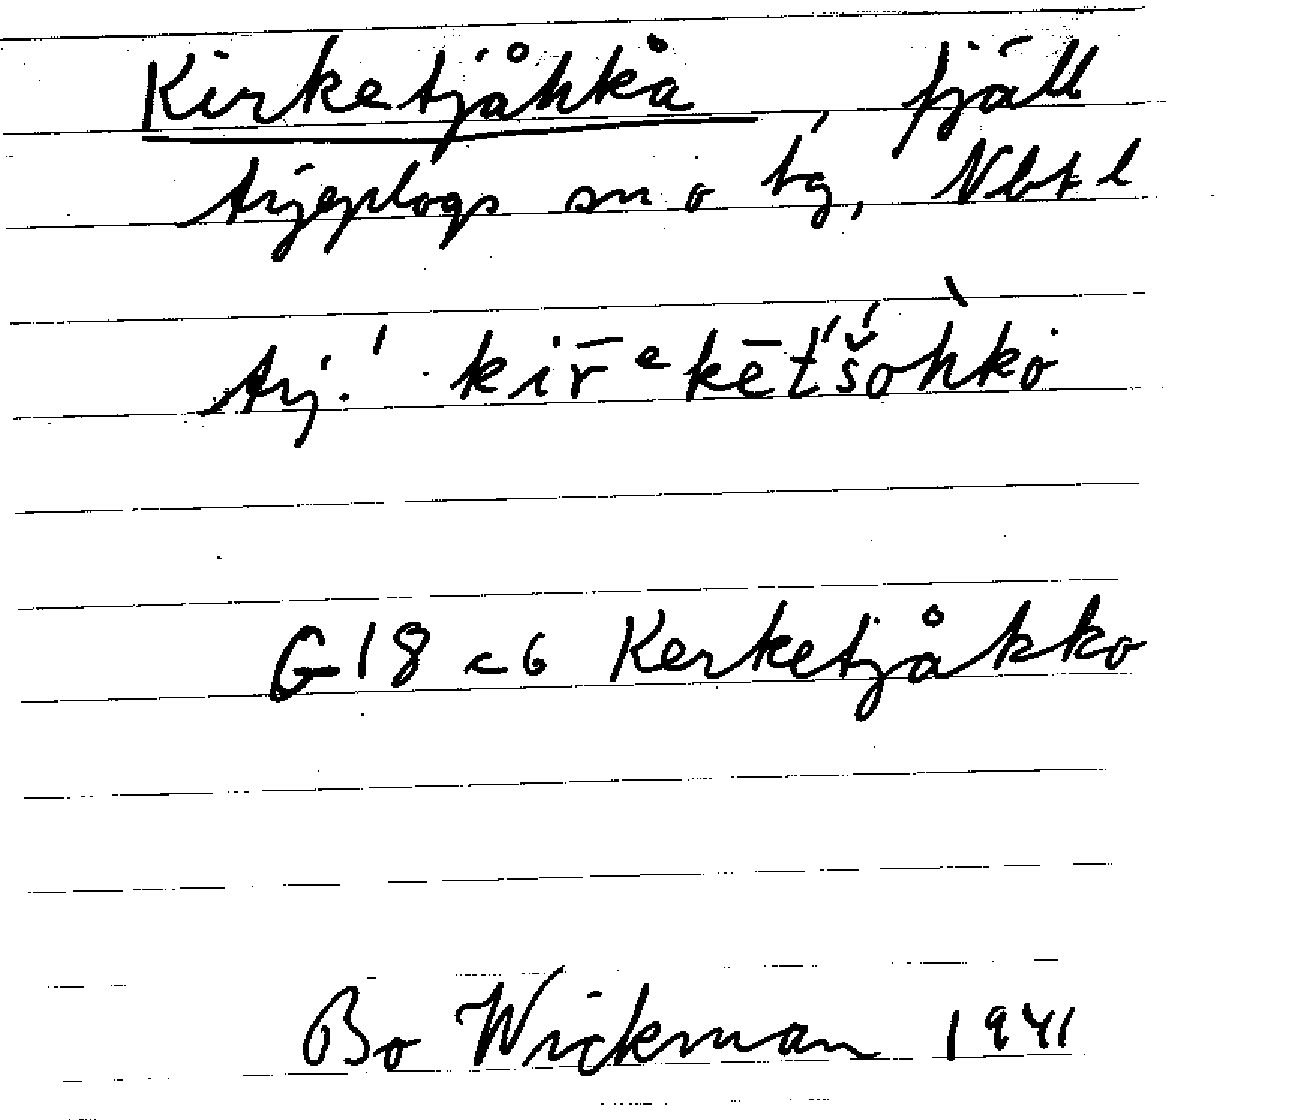 Kirketjåhkå, fjäll
Arjeplogs sn o tg, Nbt l
Arj.
G18 c6 Kerketjåkko
Bo Wickman 1941